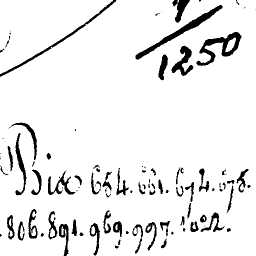 1250
Bix 654. 661. 674. 675.
806. 891. 969. 997. 1022.